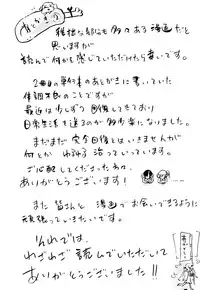 あとがき
独特な部分も多々ある漫画だと
思いますが
読んで何かを感じていただけたら幸いです。
2の単行本のあとがきに書いていた
体調不良のことですが
最近は少しずつ回復してきており
日常生活を送るのが多少楽になりました。
まだまだ完全回復とはいきませんが
何とか治っていっています。
ご心配してくださった方々、
ありがとうございます!
また皆さんと漫画でお会いできるように
頑張っていきたいです。
それでは、
わざわざ読んでいただいて
ありがとうございました!!